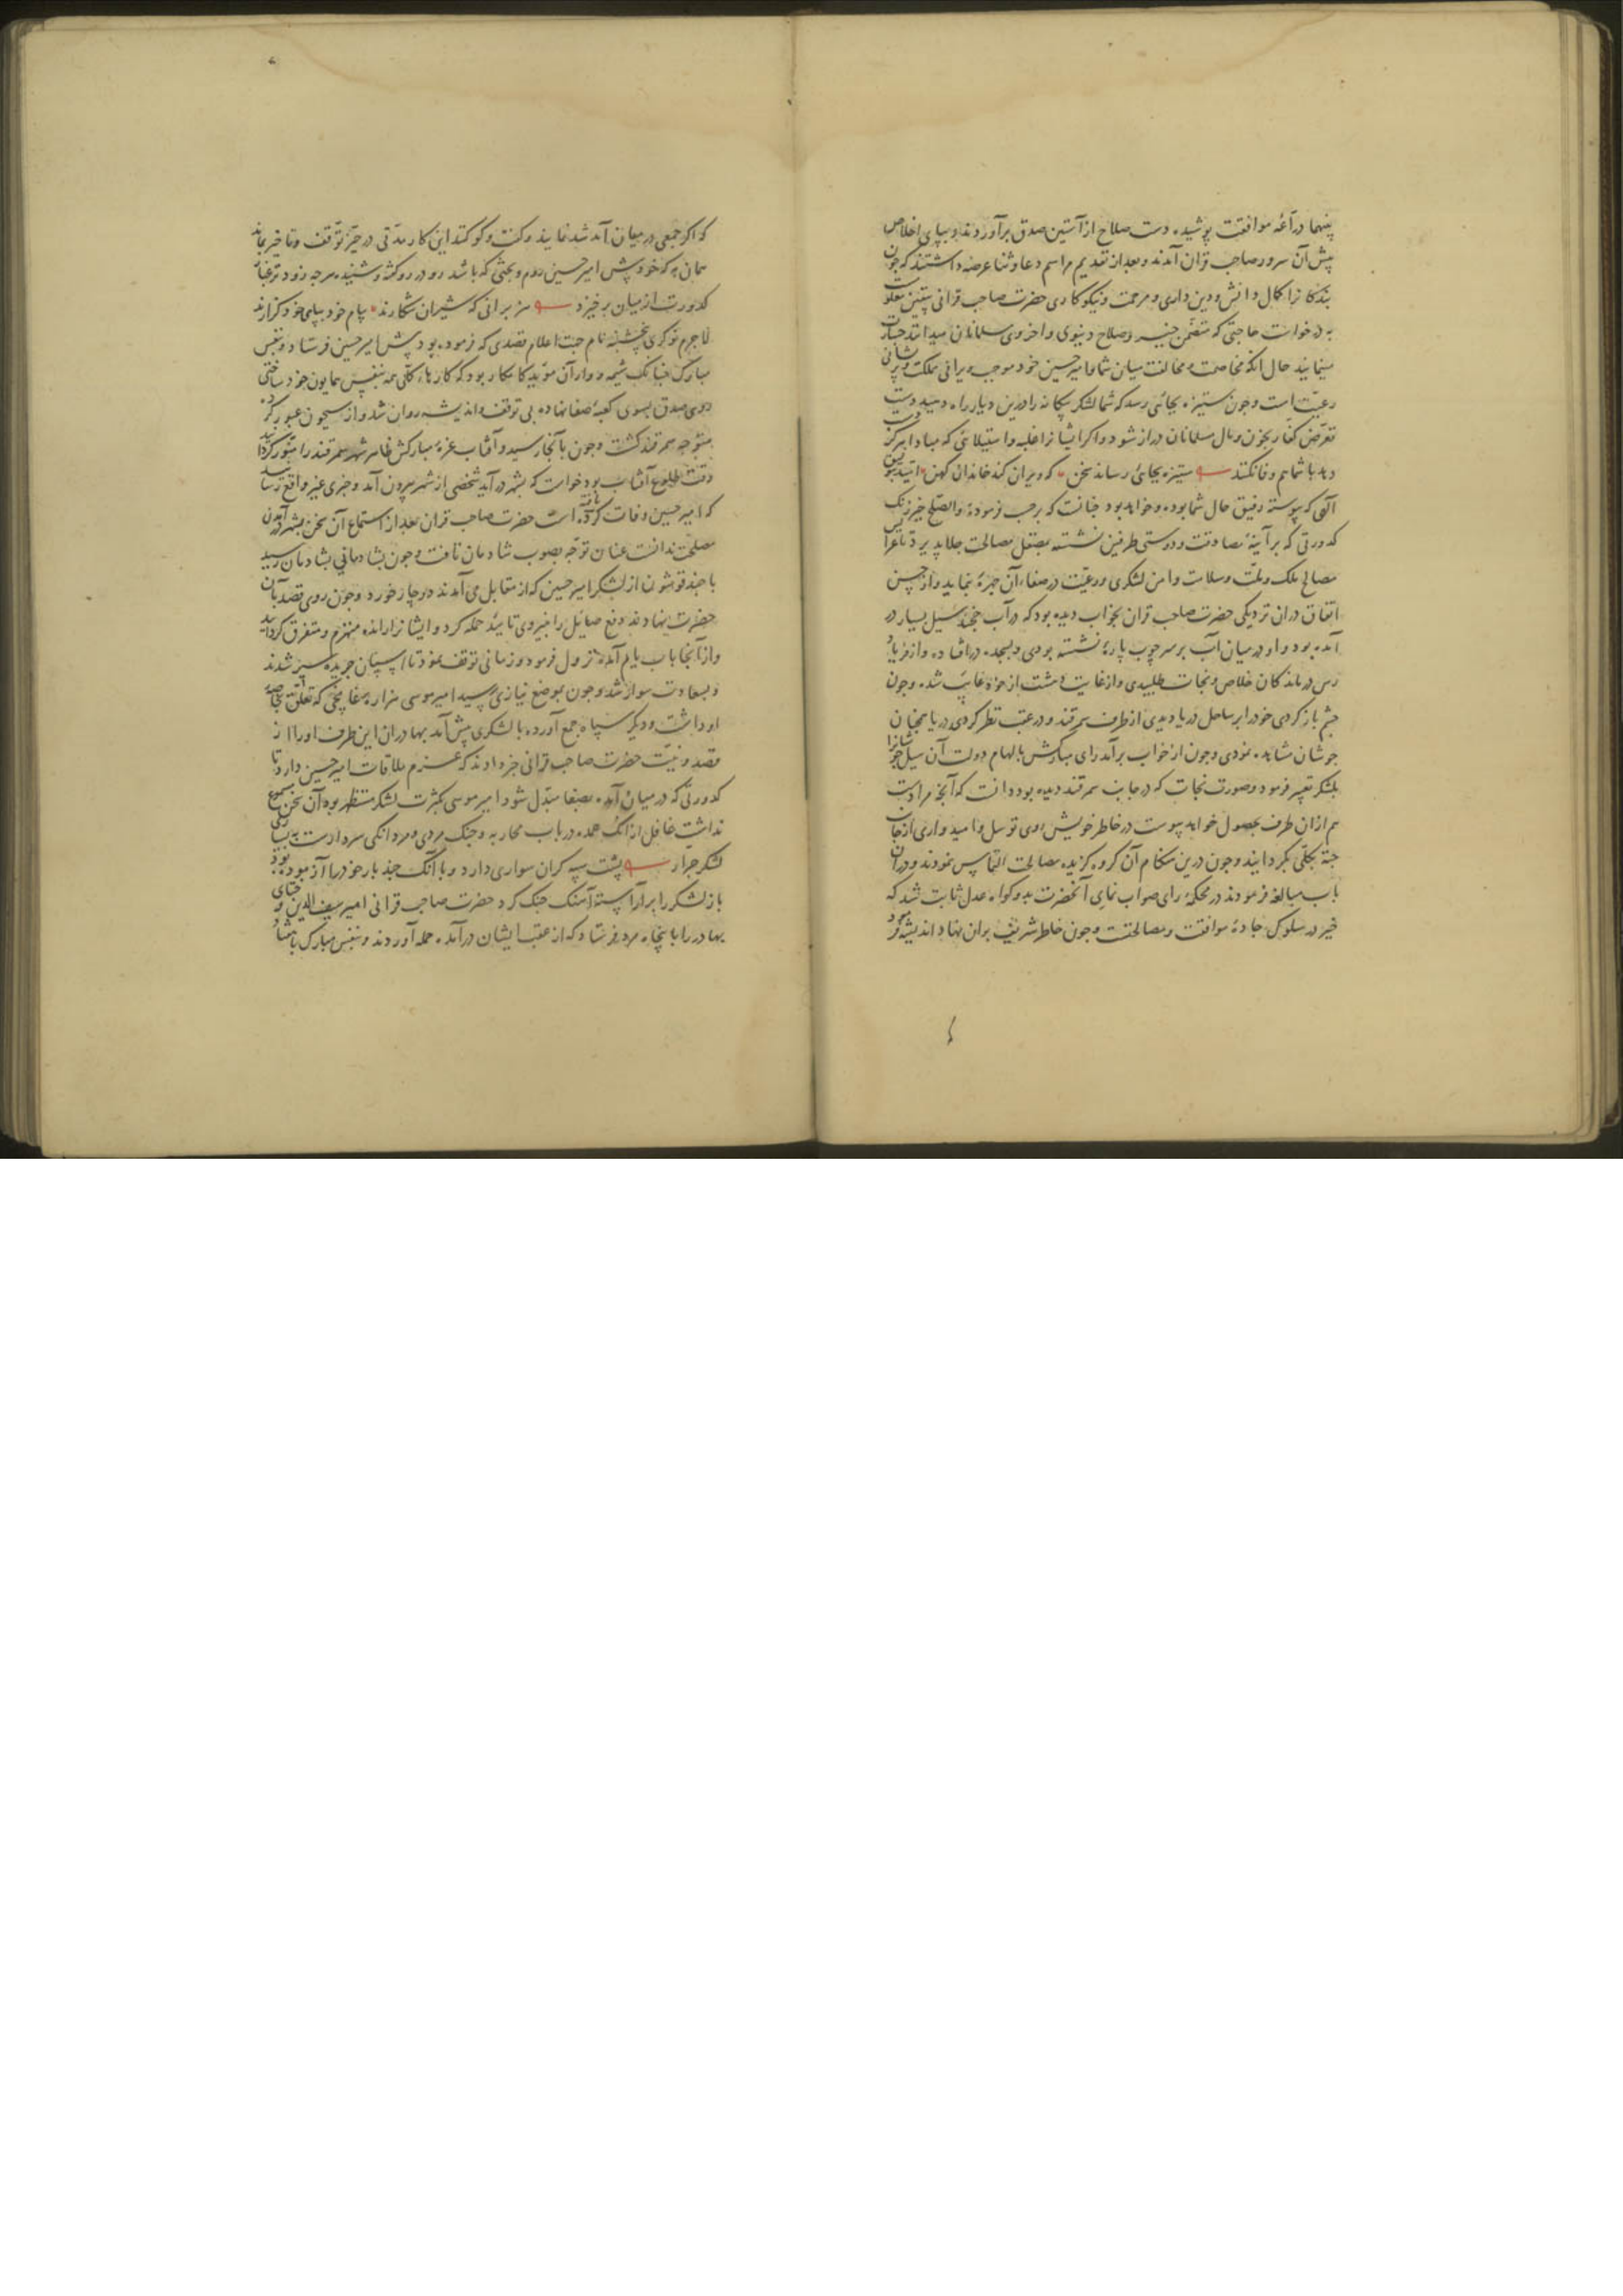 پنهما درّاعهٔ موافقت پوشیده دست صلاح از آستین صدق برآوردند و بپای اخلاص
پیش آن سرور صاحب قران آمدند و بعد از تقدیم مراسم دعا و ثنا عرضه داشتند که چون
بندکانرا کمال دانش و دین داری و مرحمت و نیکوکاری حضرت صاحب قرانی بیقین معلومست
به درخواست حاجتی که متضمن خیر و صلاح دنیوی و اخروی مسلمانان میدانند جسارت
مینمایند حال آنکه مخاصمت و مخالفت میان شما و امیر حسین خود موجب ویرانی مملکت و پریشانی
رعیّت است و چون ستیزه بجائی رسد که شما لشکر بیکانه را درین دیار راه دهید دست
تعرّض کفّار بخون و مال مسلمانان دراز شود و اکر ایشانرا غلبه و استیلائی که مبادا هرکز دست
دهد با شما هم وفا نکنند ستیزه بجائی رساند سخن که ویران کند خاندان کهن امّید بتوفیق
الهی که پیوسته رفیق حال شما بوده و خواهد بود چنانست که برحسب فرمودهٔ والصّلح خیر زنک
کدورتی که بر آینهٔ مصادقت و دوستی طرفین نشسته بصقل مصالحت جلا پذیرد تا عرایس
مصالح ملک و ملّت و سلامت و امن لشکری و رعیّت در صفاء آن چهره نماید و از حسن
اتفاق در آن نزدیکی حضرت صاحب قران بخواب دیده بود که در آب خجند سیل بسیار در
آمده بود و او در میان آب بر سر چوب پارهٔ نشسته بودی و بسجده در افتاده و از فریاد
رس درماندکان خلاص و نجات طلبیدی و از غایت دهشت از خود غایب شده و چون
چشم باز کردی خود را بر ساحل دریا دیدی از طرف سمرقند و در عقب نظر کردی دریا همچنان
جوشان مشاهده نمودی و چون از خواب برآمد رای مبارکش بالهام دولت آن سیل جوشانرا
بلشکر تعبیر فرمود و صورت نجات که در جانب سمرقند دیده بود دانست که آنچه مرادست
هم از آن طرف بحصول خواهد پیوست در خاطر خویش روی توسل و امیدواری از جانب
جته بکلّی بکردانید و چون درین هنکام آن کروه کزیده مصالحت التماس نمودند و در آن
باب مبالغه فرمودند در محکمهٔ رای صواب نمای آنحضرت بدو کواه عدل ثابت شد که
خیر در سلوک جادهٔ موافقت و مصالحتست و چون خاطر شریف بر آن نهاد اندیشه فرمود
که اکر جمعی در میان آمد شد نمایند و کفت و کو کنند این کار مدّتی در حیّز توقف و تاخیر بماند
همان به که خود پیش امیر حسین روم و بحثی که باشد رو در رو کفته و شنیده هرچه زودتر غبار
کدورت از میان برخیزد هزبرانی که شیران شکارند پیام خود بپای خود کزارند
لاجرم نوکری پنجشنبه نام جهت اعلام قصدی که فرموده بود پیش امیر حسین فرستاد و بنفس
مبارک چنانک شیمه و وار آن مؤید کامکار بود که کارهاء کلّی همه بنفس همایون خود ساختی
روی صدق بسوی کعبهٔ صفا نهاده بی توقف و اندیشه روان شد و از سیحون عبور کرده
متوجه سمرقند کشت و چون بآنجا رسید و آفتاب غرّهٔ مبارکش ظاهر شهر سمرقند را منوّر کردانید
وقت طلوع آفتاب بود خواست که بشهر درآید شخصی از شهر بیرون آمد و خبری غیر واقع رسانید
که امیر حسین وفات کرده است حضرت صاحب قران بعد از استماع آن سخن بشهر درآمدن
مصلحت ندانست عنان توجّه بصوب شادمان تافت و چون بشادمانی بشادمان رسید
با چند قوشون از لشکر امیر حسین که از مقابل می آمدند دوچار خورد و چون روی قصد بآن
حضرت نهادند دفع صایل را بنیروی تایید حمله کرد و ایشانرا رانده منهزم و متفرق کردانید
و از آنجا باب یام آمده نزول فرمود و زمانی توقف نمود تا اسپان جریده سیر شدند
و بسعادت سوار شد و چون بموضع نیازی رسید امیر موسی هزاره یغاپخی که تعلّق بخاصهٔ
او داشت و دیکر سپاه جمع آورده با لشکری پیش آمد بهادران این طرف او را از
قصد و نیّت حضرت صاحب قرانی خبر دادند که عزم ملاقات امیر حسین دارد تا
کدورتی که در میان آمده بصفا مبدّل شود امیر موسی بکثرت لشکر مستظهر بوده آن سخن مسموع
نداشت غافل از آنک عمده در باب محاربه و جنک مردی و مردانکی سردارست نه بسیاری
لشکر جرّار پشت سپه کران سواری دارد و با آنک چند بار خود را آزموده بود
باز لشکر را برآراسته آهنک جنک کرد حضرت صاحب قرانی امیر سیف الدین و ختای
بهادر را با پنجاه مرد فرستاد که از عقب ایشان درآمده حمله آوردند و بنفس مبارک با شصد